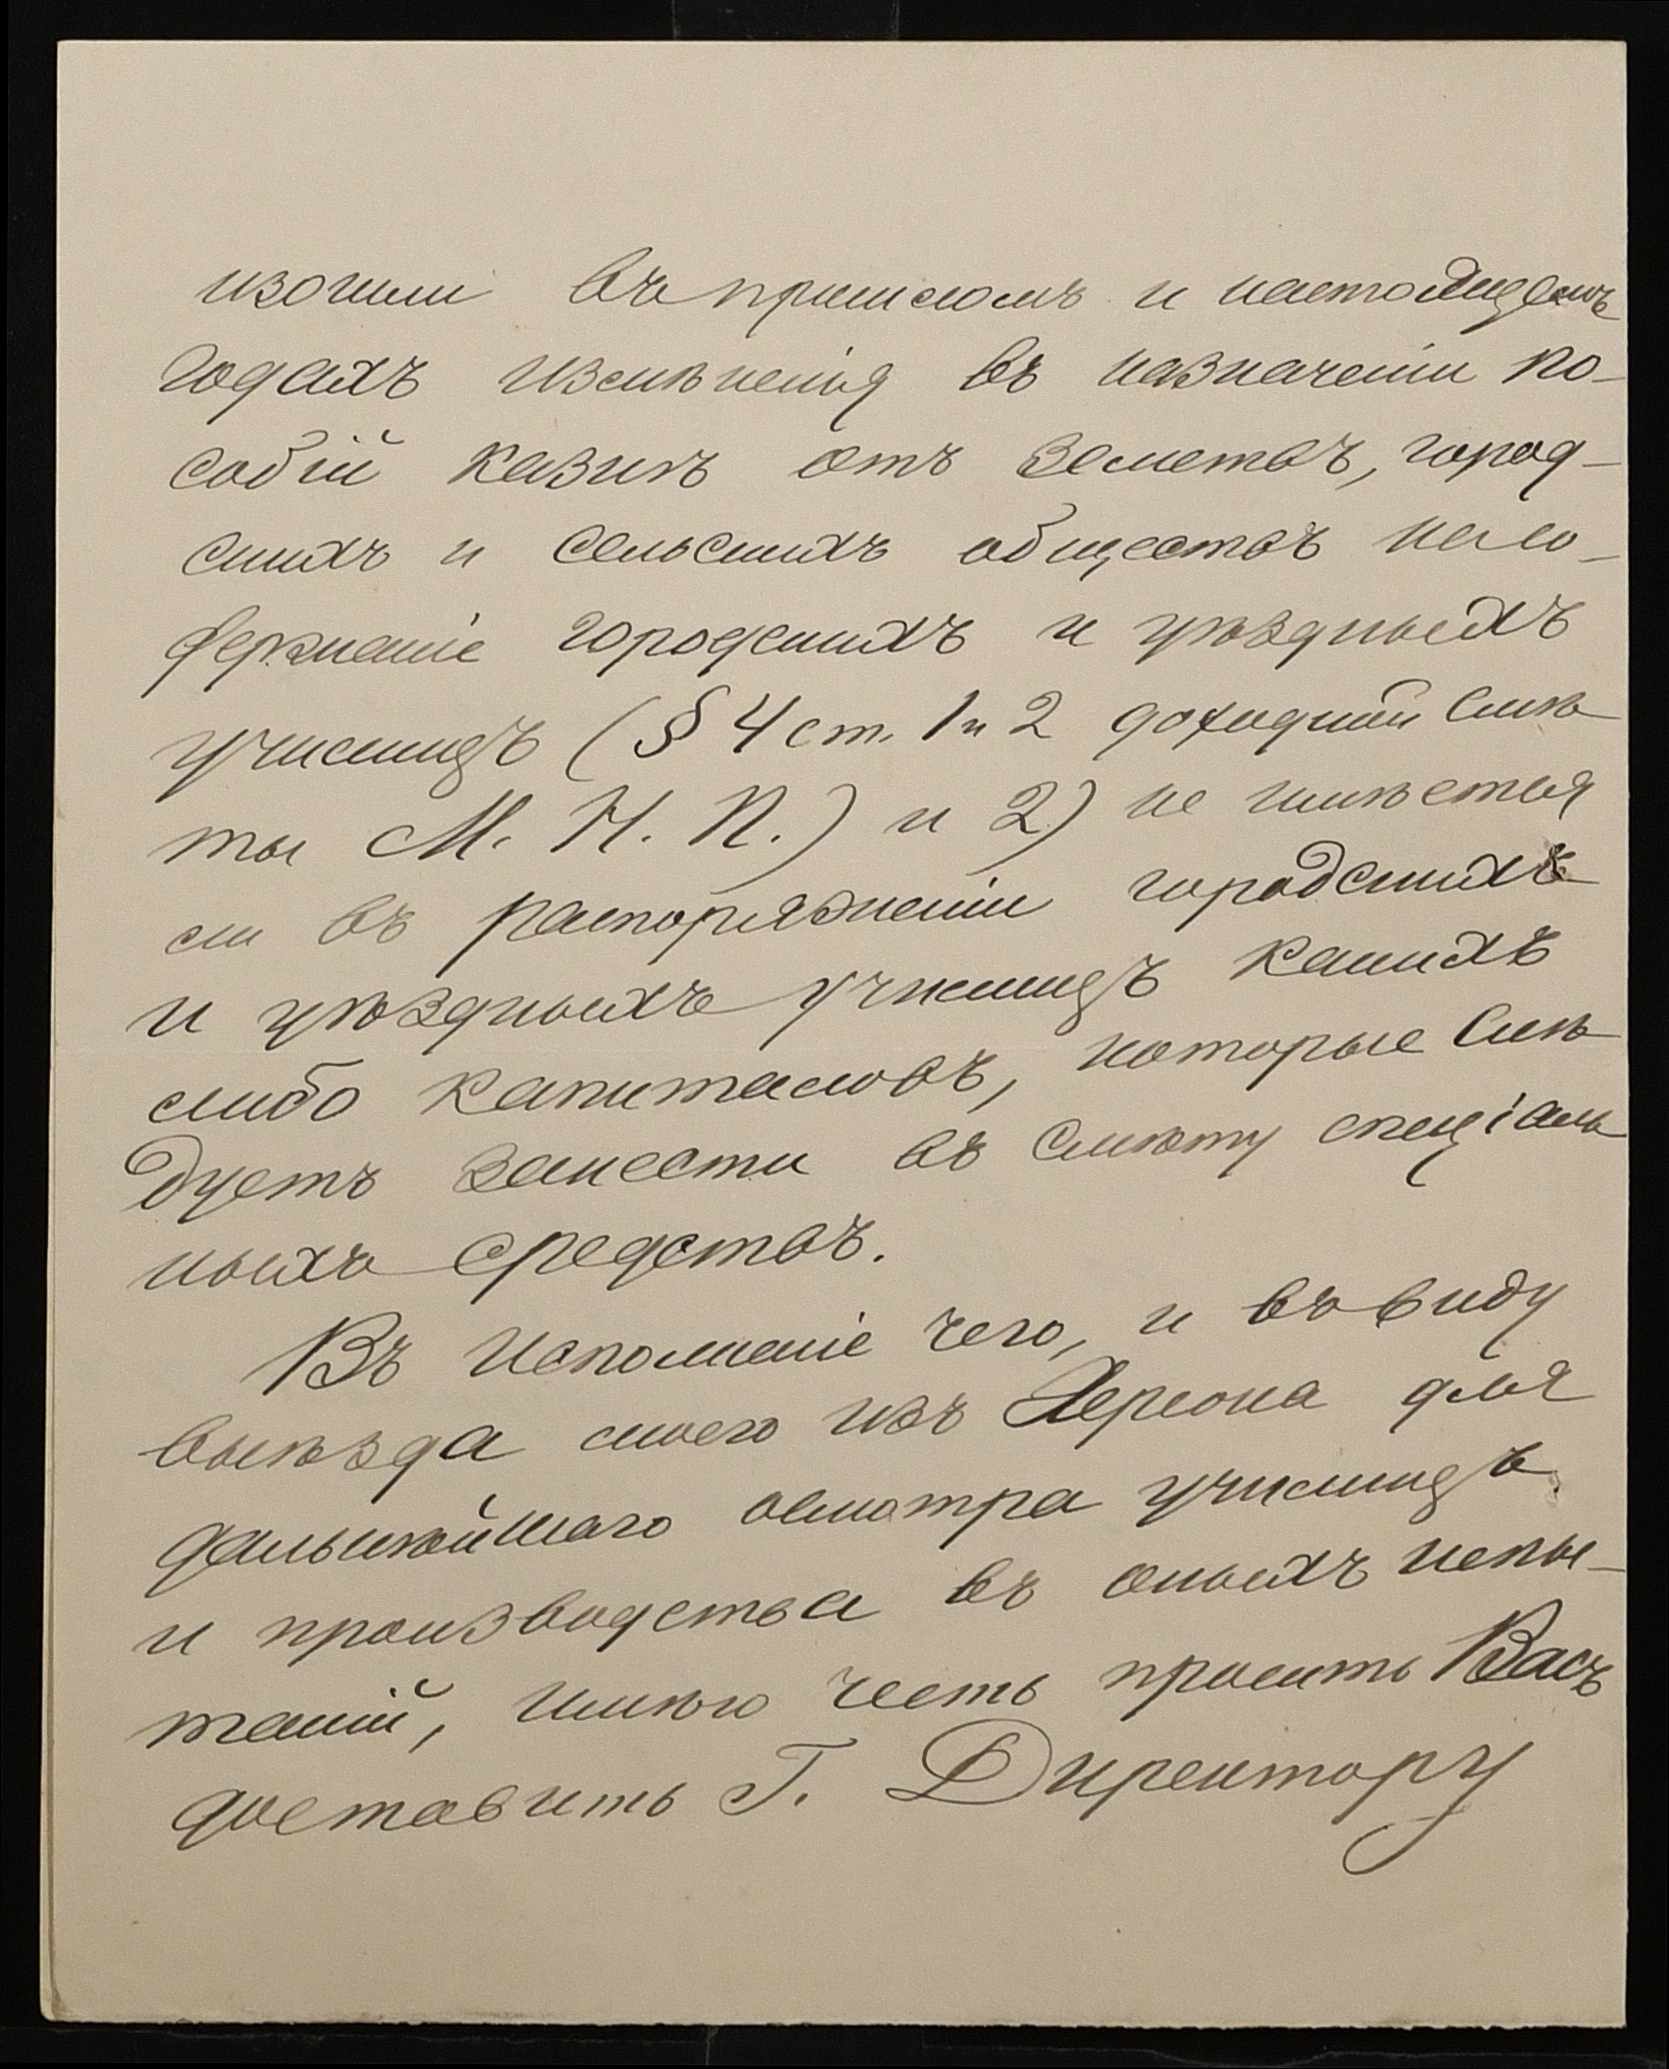 изошли въ прошломъ и настоящемъ
годахъ измѣненія въ назначеніи по-
собій казнѣ отъ земствъ, город-
скихъ и сельскихъ обществъ на со-
держаніе городскихъ и уѣздныхъ
училищъ (§ 4 ст. 1 и 2 доходной смѣ
ты М. Н. П.) и 2) не имѣется
ли въ распоряженіи городскихъ
и уѣздныхъ училищъ какихъ
либо капиталовъ, которые слѣ
дуетъ занести въ смѣту спеціаль
ныхъ средствъ.
Въ исполненіе чего, и въ виду
выѣзда моего изъ Херсона для
дальнѣйшаго осмотра училищъ
и производства въ оныхъ испы-
таній, имѣю честь просить Васъ
доставить Г. Директору